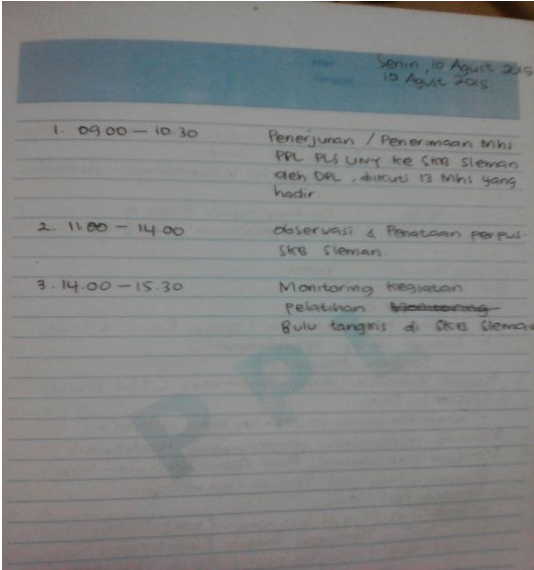 Senin, 10 Agust 2015
10 Agust 2015
1. 09.00 - 10.30 Penerjunan / Penerimaan Mhs
PPL PLS UNY ke SKB Sleman
oleh DPL, diikuti 13 Mhs yang
hadir.
2. 11.00 - 14.00 observasi & Penataan perpus.
SKB Sleman
3. 14.00 - 15.30 Monitoring kegiatan
pelatihan Monitoring
Bulu tangkis di SKB Sleman
PPL